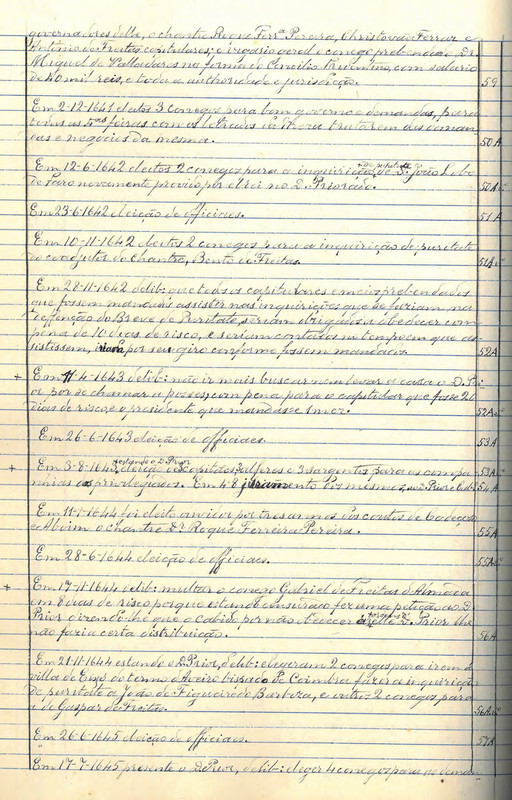 governadores della, o chantre Roque Ferrª Pereira, Christovão Ferraz e
António de Freitas capitulares; e vigario geral o conego prebendado Dr.
Miguel de Valladares na forma do Concilio Tridentino, com salario
de 40 mil reis, e toda a authoridade e jurisdicção. 59
Em 2-12-1641 eleitos 3 conegos para bom governo e demandas, para
todas as 5as feiras com os letrados da Meza tratarem das deman-
das e negocios da mesma. 50 A
Em 12-6-1642 eleitos 2 conegos para a inquirição de puritate de D. João Lobo
de Faro novamente provido por el rei no D. Priorado. 50 Avº
Em 23-6-1642 eleição de officiaes. 51 A
Em 10-11-1642 eleitos 2 conegos para a inquirição de puritate
do coadjutor do Chantre, Bento de Freitas. 51 Avº
Em 28-11-1642 delib: que todos os capitulares e meios prebendados
que fossem mandados assistir nas inquirições que se fariam na
do Breve de Puritate, seriam obrigados a obedecer com
pena de 10 dias de risco, e seriam contados no tempo em que as-
sistissem, por seu giro conforme fossem mandados. 52 A
+ Em 11-4-1643 delib: não ir mais buscar nem levar a casa o D. Pri-
or, por se chamar a posse; com pena para o capitular que fosse 20
dias de risco, e o presidente que mandasse 1 mez. 52 Avº
Em 26-6-1643 eleição de officiaes. 53 A
+ Em 3-8-1643, estando o D. Prior, eleição de capitães, alferes e 3 sargentos para as compa- 53 Avº
nhias de privilegiados. Em 4-8 juramento dos mesmos, 54 A
Em 11-1-1644 foi eleito ouvidor por tres annos dos coutos de Codeçoso
e Aboim o chantre Dr. Roque Ferreira Pereira. 55 A
Em 28-6-1644 eleição de officiaes. 55 Avº
+ Em 17-11-1644 delib: multar o conego Gabriel de Freitas d'Almada
em 8 dias de risco porque estando censurado fez uma petição ao D.
Prior dizendo-lhe que o Cabido por não obedecer D. Prior lhe
não fazia certa distribuição. 56 A
Em 21-11-1644 estando o D. Prior, delib: elegeram 2 conegos para irem á
villa de do termo d'Aveiro bispado de Coimbra fazer a inquirição
de puritate a João de Figueiredo Barboza, e outros 2 conegos para
a de Gaspar de Freitas. 56 Avº
Em 26-6-1645 eleição de officiaes. 57 A
Em 17-7-1645 presente o D. Prior, delib: eleger 4 conegos para as deman-